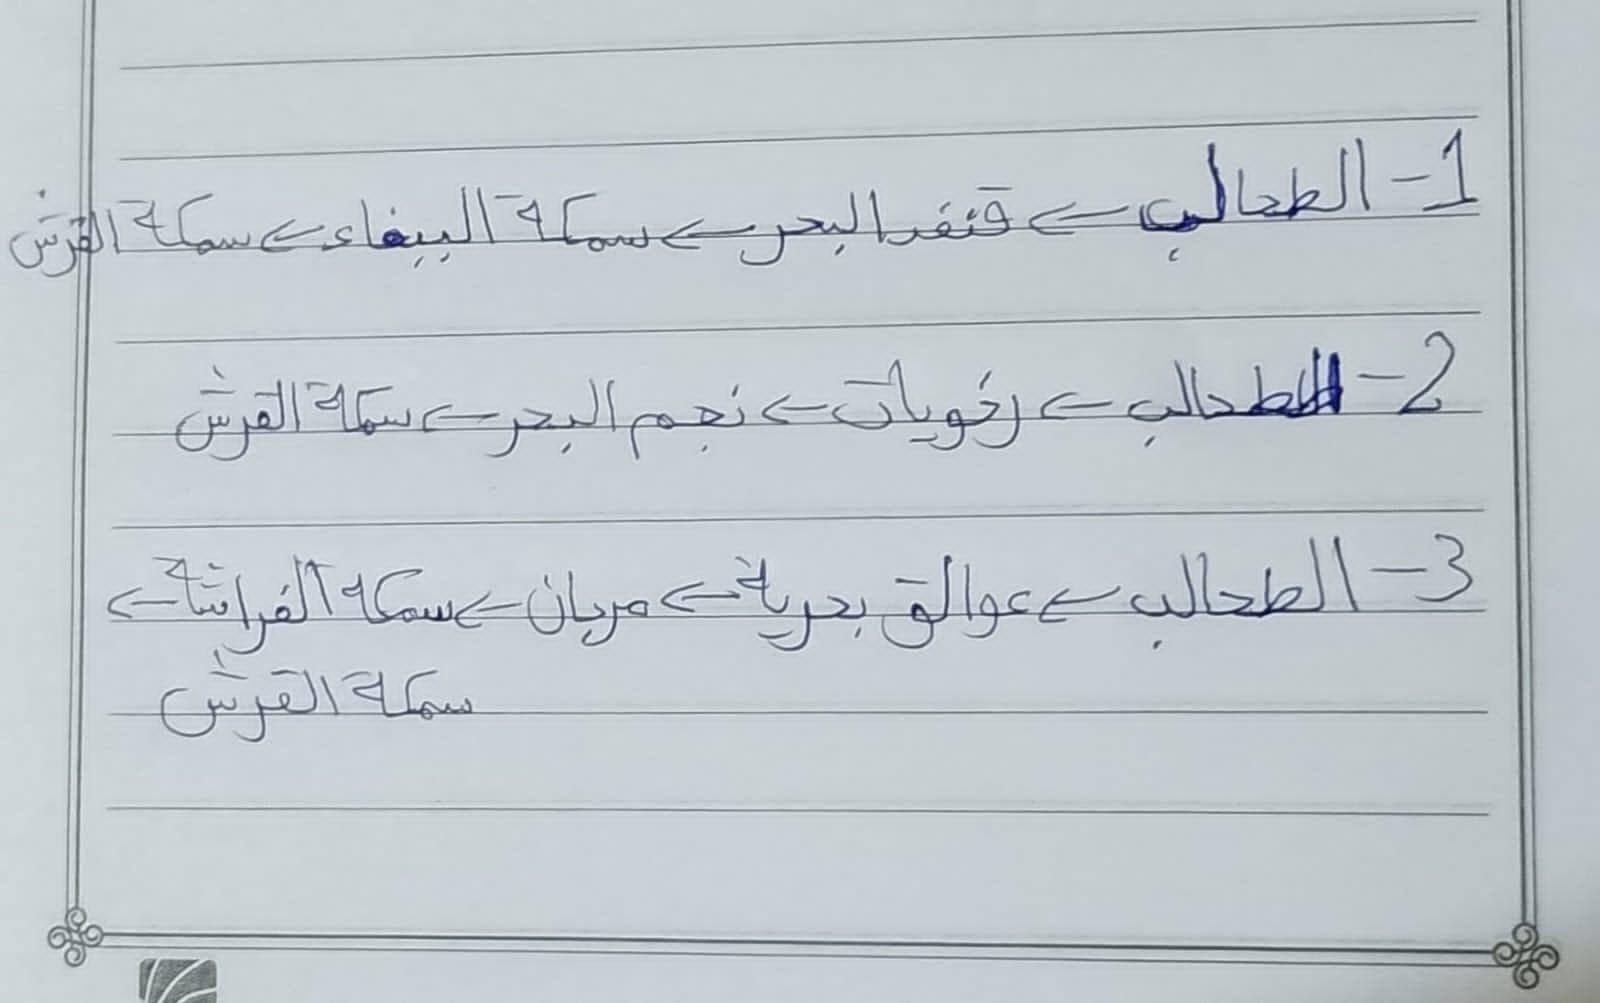 1- الطحالب ← قنفد البحر ← سمكة الببغاء ← سمكة القرش
2- الطحالب ← رخويات ← نجم البحر ← سمكة القرش
3- الطحالب ← عوالق بحرية ← مرجان ← سمكة الفراشة ←
سمكة القرش